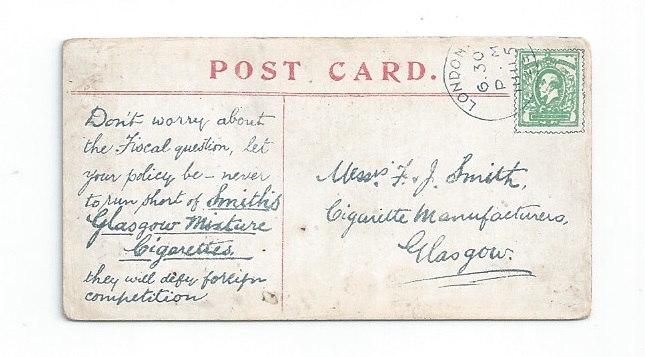 POST CARD.
LONDON.
6 30
P M
Don't worry about
the Fiscal question, let
your policy be - never
to run short of Smith's
Glasgow Mixture
Cigarettes.
they will defy foreign
competition
Messrs F. & J. Smith,
Cigarette Manufacturers,
Glasgow.